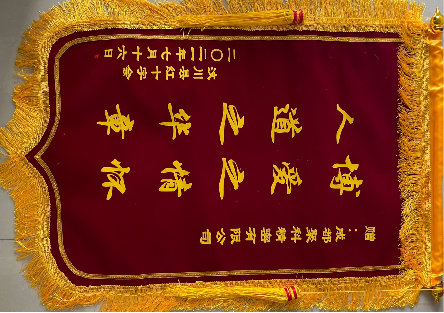 赠：成都科精密有限公司
博爱之情怀
人道之华章
汶川县红十字会
二〇二一年七月十六日